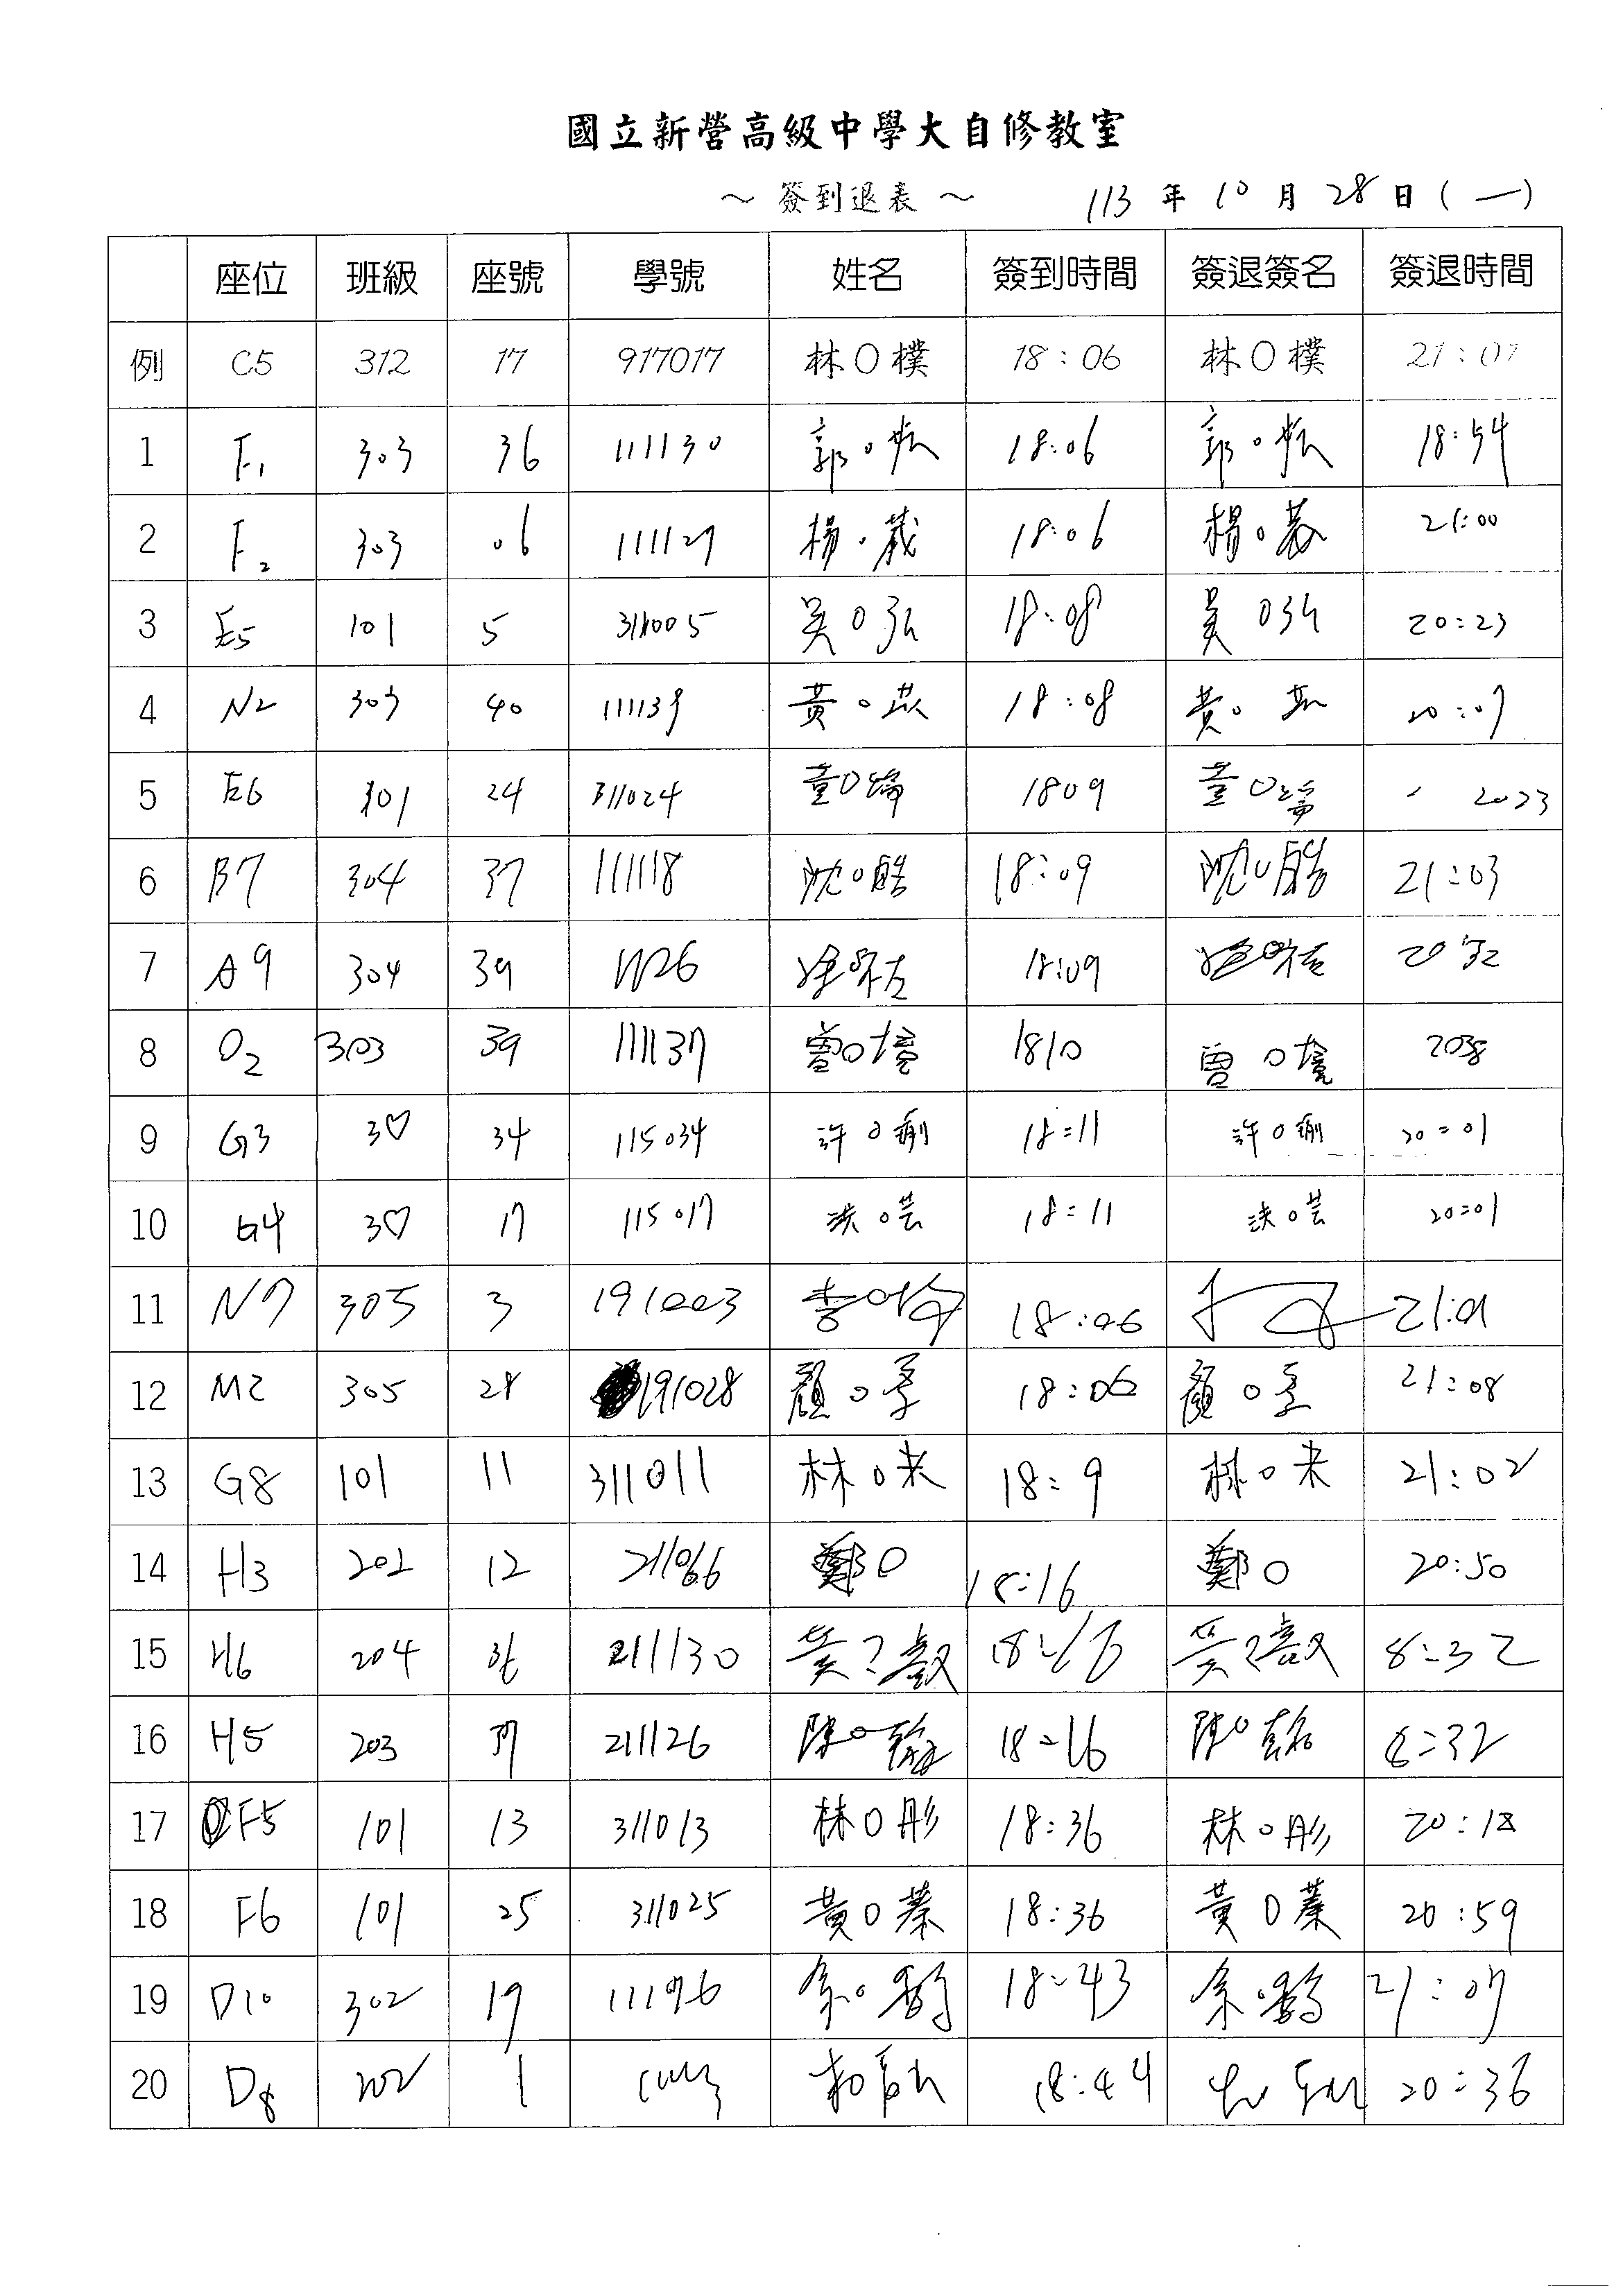 國立新營高級中學大自修教室
～ 簽到退表 ～ 113 年 10 月 28 日 (一)
座位 班級 座號 學號 姓名 簽到時間 簽退簽名 簽退時間
例 C5 312 17 917017 林O樸 18:06 林O樸 21:07
1 F1 303 36 111130 郭O 18:06 郭O 18:54
2 F2 303 06 111127 楊O葳 18:06 楊O葳 21:00
3 E5 101 5 311005 吳O弘 18:08 吳O弘 20:23
4 N2 303 40 111139 黃O 18:08 黃O 20:07
5 E6 101 24 311024 董O 1809 董O 2023
6 B7 304 37 111118 沈O皓 18:09 沈O皓 21:03
7 A9 304 39 18:09 20:32
8 O2 303 39 111137 曾O境 1810 曾O境 2038
9 G3 3♡ 34 115034 許O 18:11 許O 20:01
10 G4 3♡ 17 115017 洪O芸 18:11 洪O芸 20:01
11 N7 305 3 191003 李O 18:06 21:01
12 M2 305 28 191028 顏O季 18:06 顏O季 21:08
13 G8 101 11 311011 林O米 18:9 林O米 21:02
14 H3 202 12 211066 鄭O 18:16 鄭O 20:50
15 H6 204 36 211130 黃?毅 18:16 黃?毅 8:32
16 H5 203 37 211126 陳O 18:16 陳O 8:32
17 F5 101 13 311013 林O彤 18:36 林O彤 20:18
18 F6 101 25 311025 黃O蓁 18:36 黃O蓁 20:59
19 D10 302 19 余O 18:43 余O 21:07
20 D8 202 1 18:44 20:36